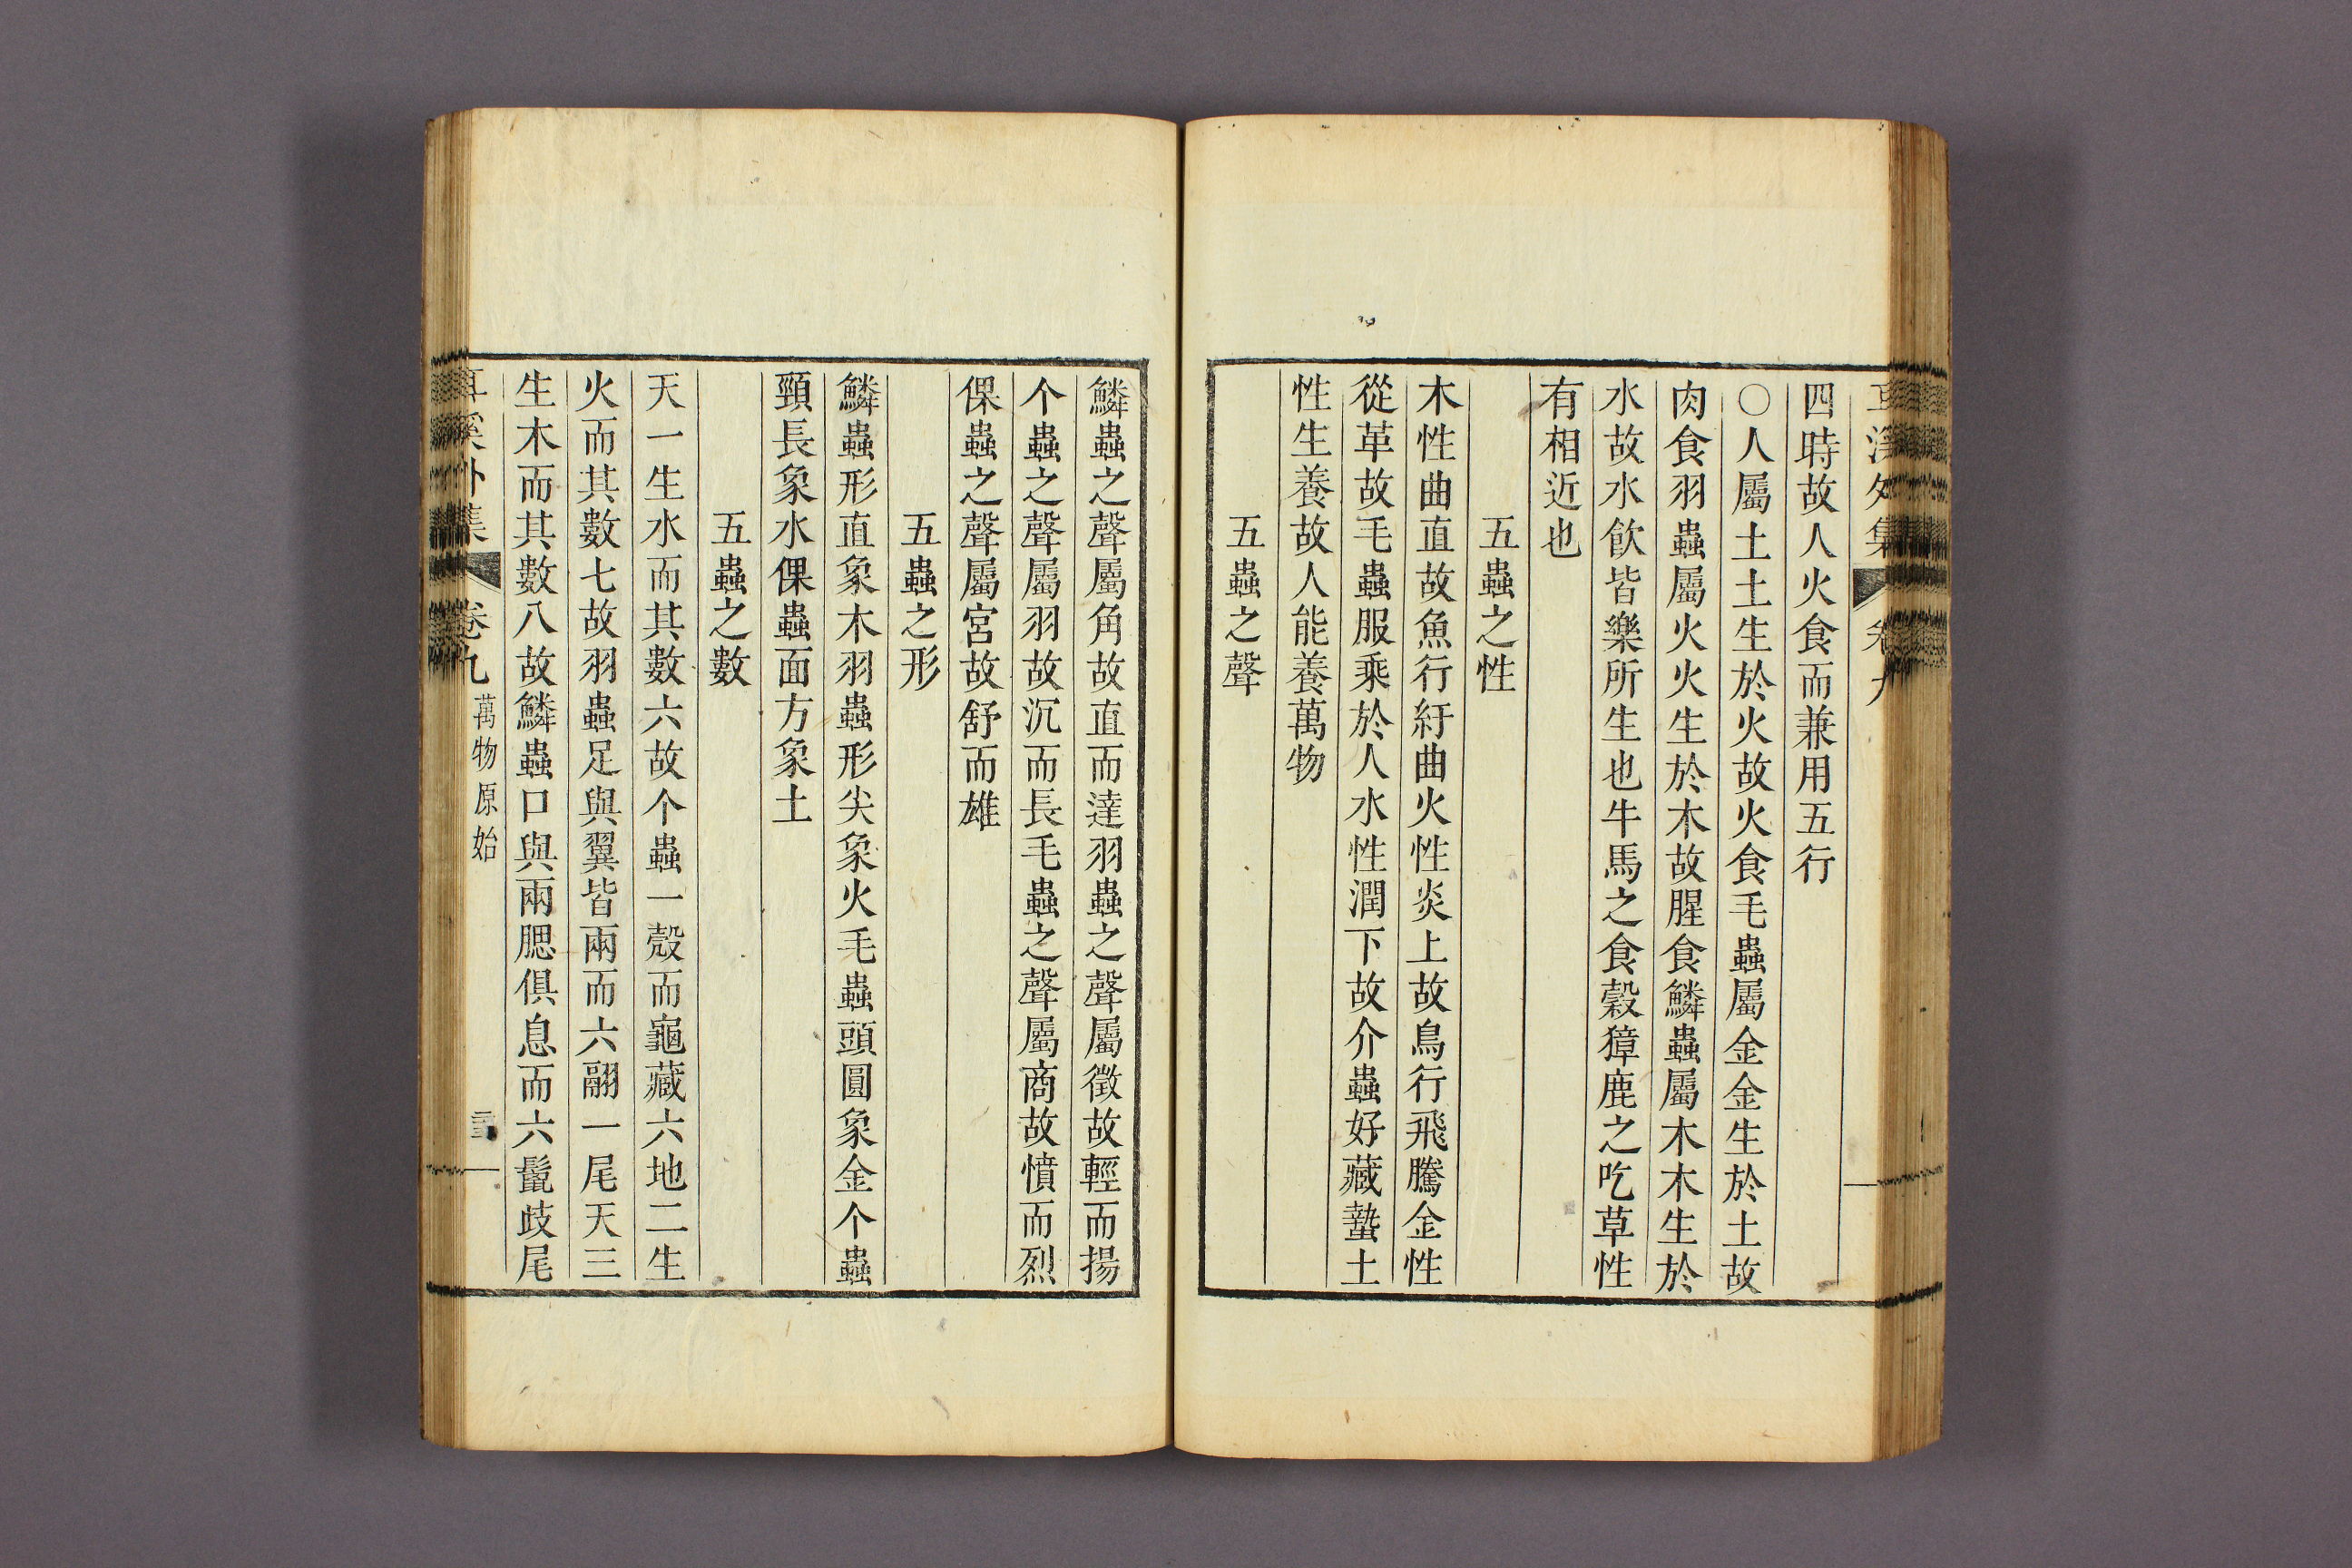 四時故人火食而兼用五行
○人屬土土生於火故火食毛蟲屬金金生於土故
肉食羽蟲屬火火生於木故腥食鱗蟲屬木木生於
水故水飮皆樂所生也牛馬之食穀獐鹿之吃草性
有相近也
五蟲之性
木性曲直故魚行紆曲火性炎上故鳥行飛騰金性
從革故毛蟲服乘於人水性潤下故介蟲好藏蟄土
性生養故人能養萬物
五蟲之聲
鱗蟲之聲屬角故直而達羽蟲之聲屬徵故輕而揚
个蟲之聲屬羽故沉而長毛蟲之聲屬商故憤而烈
倮蟲之聲屬宮故舒而雄
五蟲之形
鱗蟲形直象木羽蟲形尖象火毛蟲頭圓象金个蟲
頸長象水倮蟲面方象土
五蟲之數
天一生水而其數六故个蟲一殼而龜藏六地二生
火而其數七故羽蟲足與翼皆兩而六翮一尾天三
生木而其數八故鱗蟲口與兩腮俱息而六鬣歧尾
耳溪外集 卷九 萬物原始